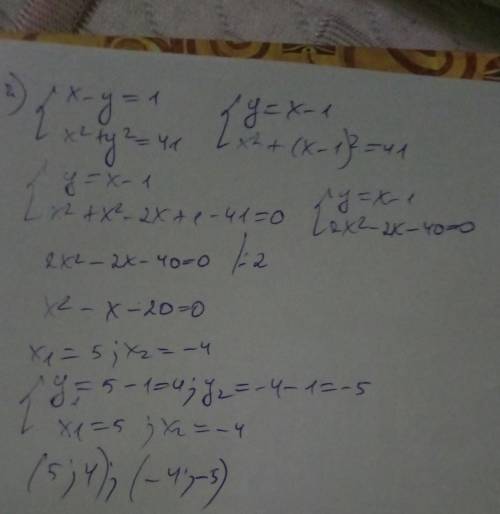 2) { x-y=1 { y=x-1
x²+y²=41 x²+(x-1)²=41
{ y=x-1 { y=x-1
x²+x²-2x+1-41=0 2x²-2x-40=0
2x²-2x-40=0 |:2
x²-x-20=0
x₁=5; x₂=-4
{ y₁=5-1=4; y₂=-4-1=-5
x₁=5; x₂=-4
(5;4); (-4;-5)